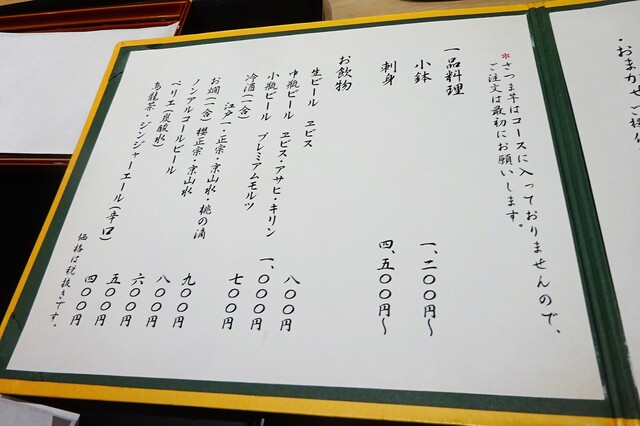 ・おまかせ
*さつま芋はコースに入っておりませんので、
ご注文は最初にお願いします。
一品料理
小鉢 一、二〇〇円〜
刺身 四、五〇〇円〜
お飲物
生ビール ヱビス 八〇〇円
中瓶ビール ヱビス・アサヒ・キリン 一、〇〇〇円
小瓶ビール プレミアムモルツ 七〇〇円
冷酒(一合)
江戸一・正宗・京山水・桃の滴 九〇〇円
お燗(一合) 櫻正宗・京山水 八〇〇円
ノンアルコールビール 六〇〇円
ペリエ(炭酸水) 五〇〇円
烏龍茶・ジンジャーエール(辛口) 四〇〇円
価格は税抜きです。